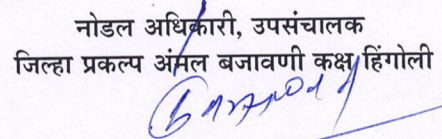 नोडल अधिकारी, उपसंचालक
जिल्हा प्रकल्प अंमल बजावणी कक्ष हिंगोली